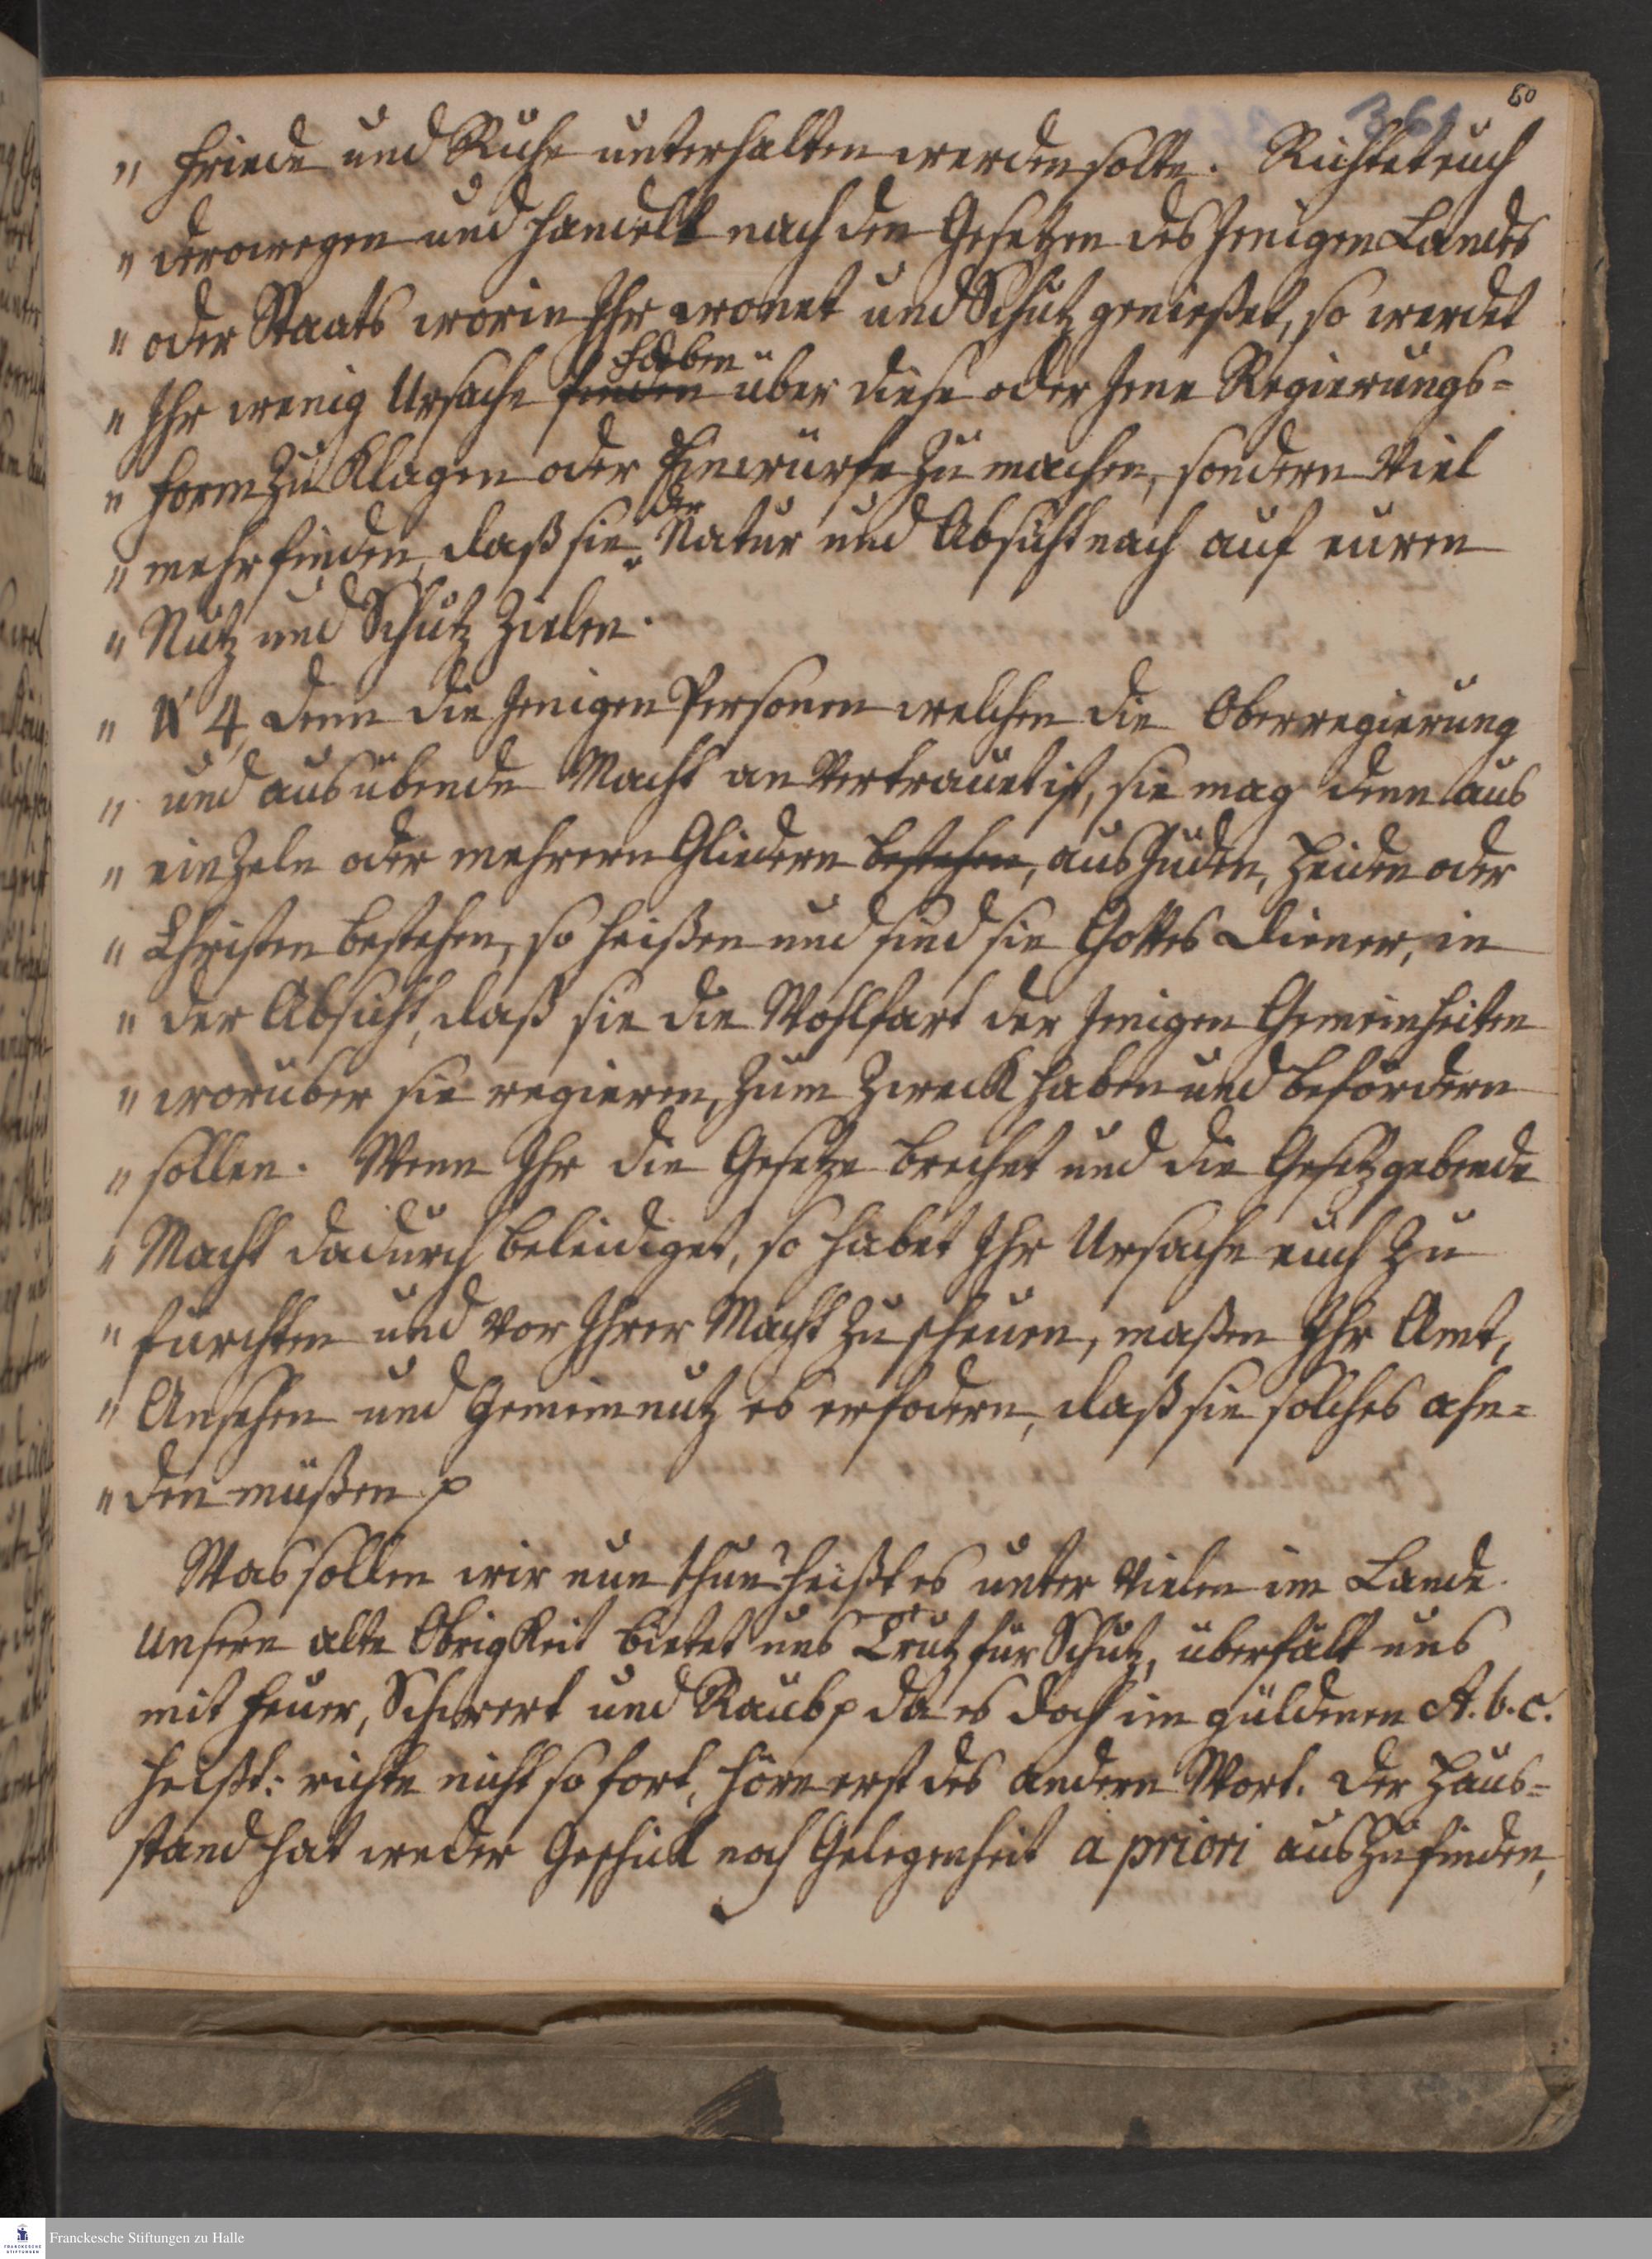 60
361
" Friede und Ruhe unterhalten werden solte. Richtet euch
" derowegen und handelt nach den Gesetzen des Jenigen Landes
" oder Staats worin Ihr wonet und Schutz genießet, so werdet
haben
" Ihr wenig Ursache finden über diese oder Jene Regierungs=
" form zu Klagen oder Einwürfe zu machen, sondern Viel
der
" mehr finden, daß sie Natur und Absicht nach auf euren
" Nutz und Schutz Zielen.
" V 4, denn die Jenigen Personen welchen die Oberregierung
" und ausübende Macht an Vertrauet ist, sie mag denn aus
" einzeln oder mehrern Gliedern bestehen, aus Juden, Heiden oder
" Christen bestehen, so heißen und sind sie Gottes Diener, in
" der Absicht, daß sie die Wohlfart der Jenigen Gemeinheiten
" worüber sie regieren, zum Zweck haben und befördern
" sollen. Wenn Ihr die Gesetze brechet und die Gesetzgebende
" Macht dadurch beleidiget, so habet Ihr Ursache euch zu
" fürchten und vor Ihrer Macht zu scheuen, maßen Ihr Amt,
" Ansehen und Gemeinnutz es erfodern, daß sie solches ahn=
" den müßen p
Was sollen wir nun thun? heißt es unter Vielen im Lande.
Unsere alte Obrigkeit bietet uns Trutz für Schutz, überfält uns
mit Feuer, Schwert und Raub p da es doch im güldenen A. b. c.
heißt: richte nicht so fort, höre erst des andern Wort. Der Haus=
stand hat weder Geschick noch Gelegenheit a priori auszufinden,
Franckesche Stiftungen zu Halle
FRANCKESCHE
STIFTUNGEN